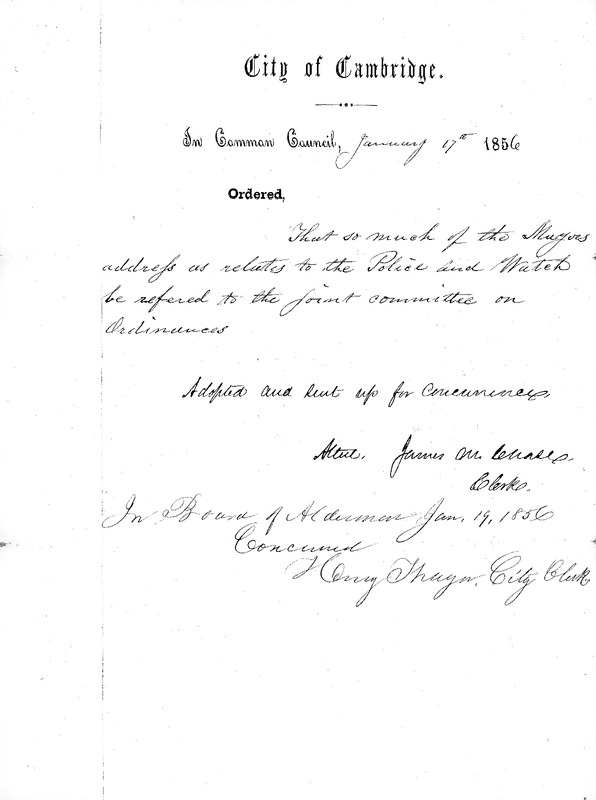 City of Cambridge.
In Common Council, January 17th 1856
Ordered,
That so much of the Mayors
address as relates to the Police and Watch
be refered to the joint committee on
Ordinances
Adopted and sent up for concurrence
Attest. James M. Chase
Clerk.
In Board of Aldermen Jan, 19, 1856
Concurred
Henry Thayer. City Clerk